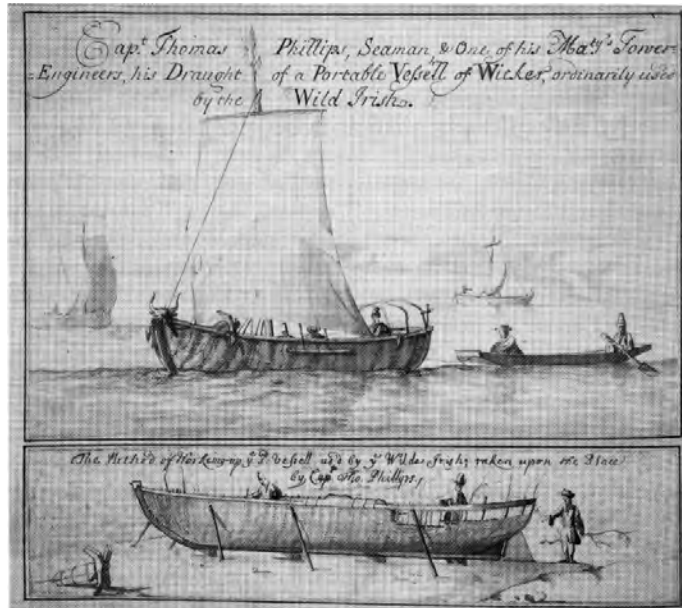 Capt. Thomas Phillips, Seaman & One of his Maty's Tower
=Engineers, his Draught of a Portable Vessell of Wicker, ordinarily used
by the Wild Irish.
The Method of Working up ye Sd. Vessell, us'd by ye Wilde Irish; taken upon the Place
by Capt. Tho. Phillips.